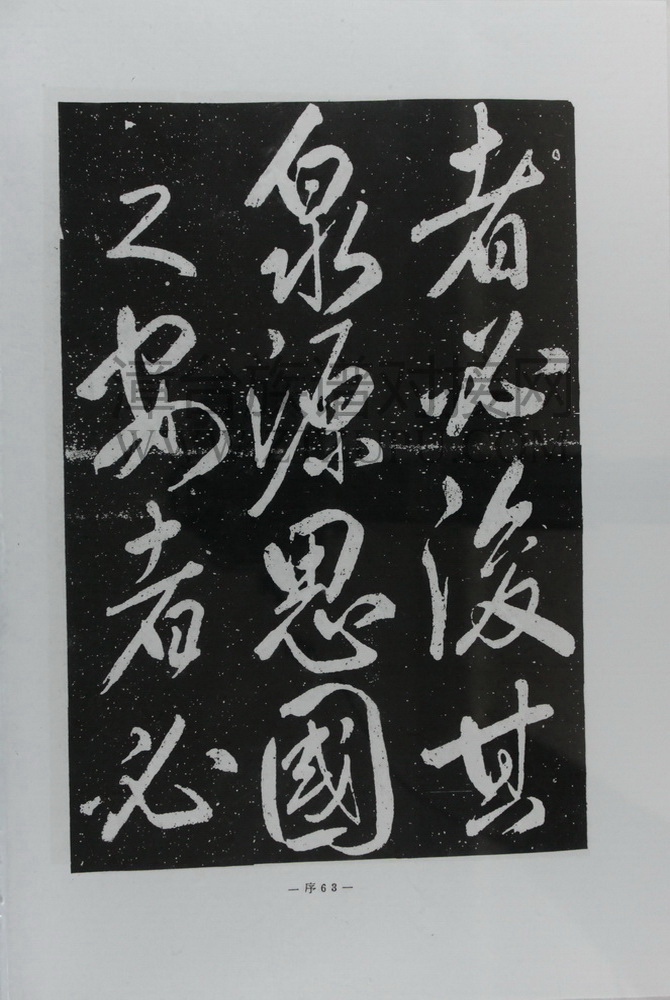 者必浚其
泉源思國
之安者必
—序63—